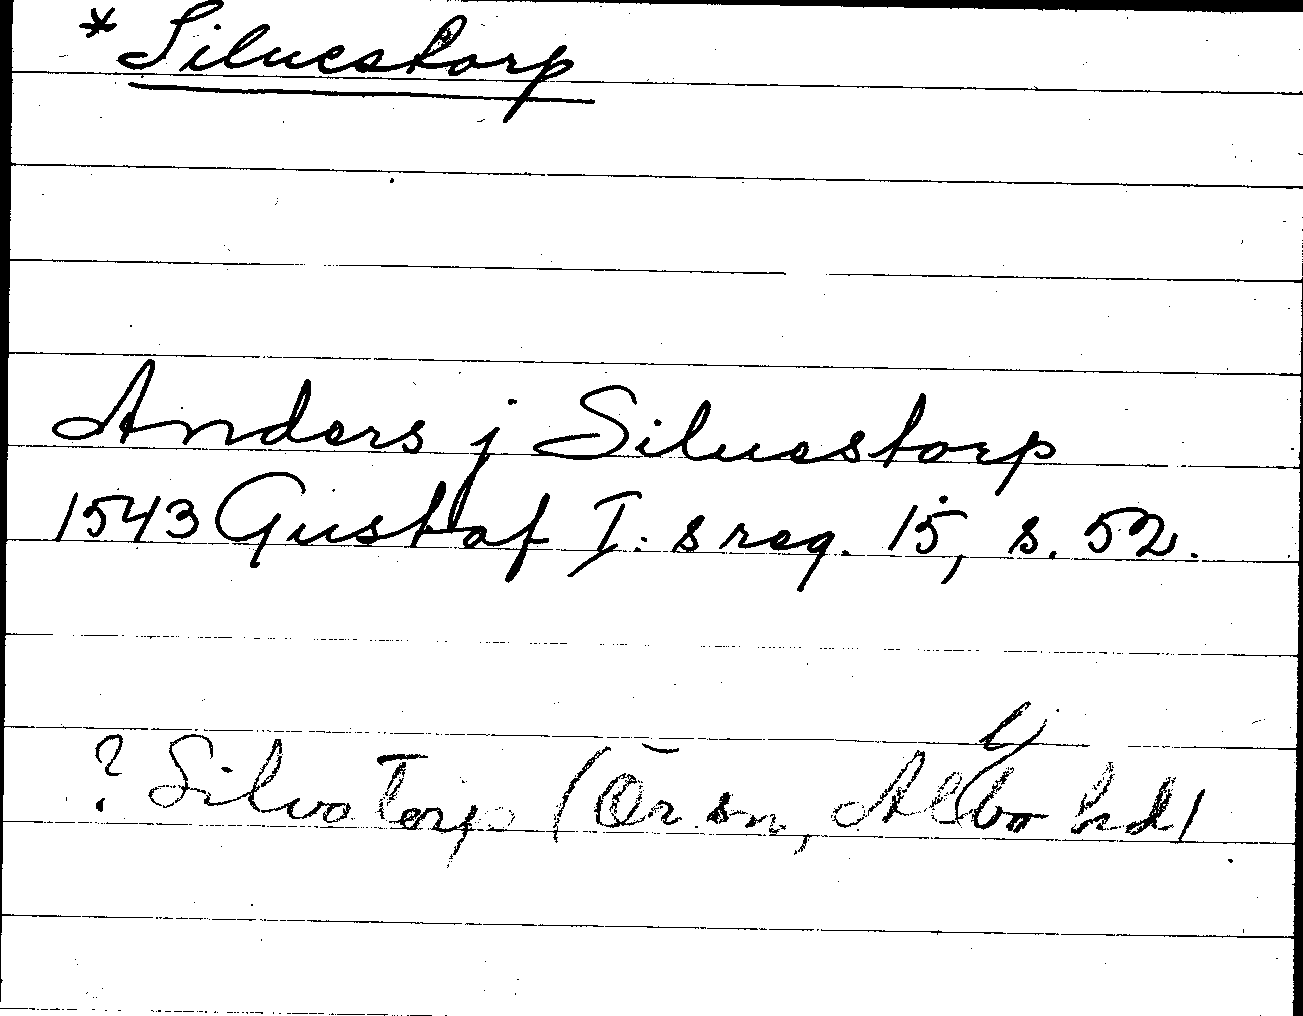 * Siluestorp
Anders j Siluestorp
1543 Gustaf I:s reg. 15, s. 52.
? Silvatorp (Ör sn, Allbo hd)